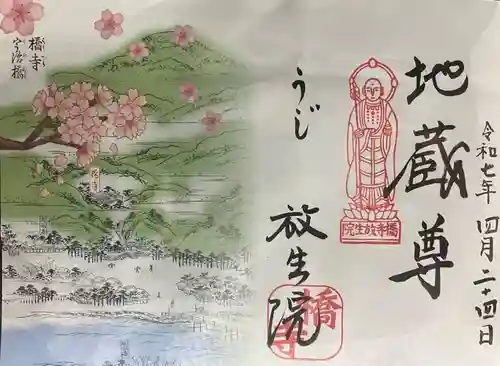 令和七年 四月二十四日
地蔵尊
橋寺放生院
うじ
放生院
橋寺
橋寺
宇治橋